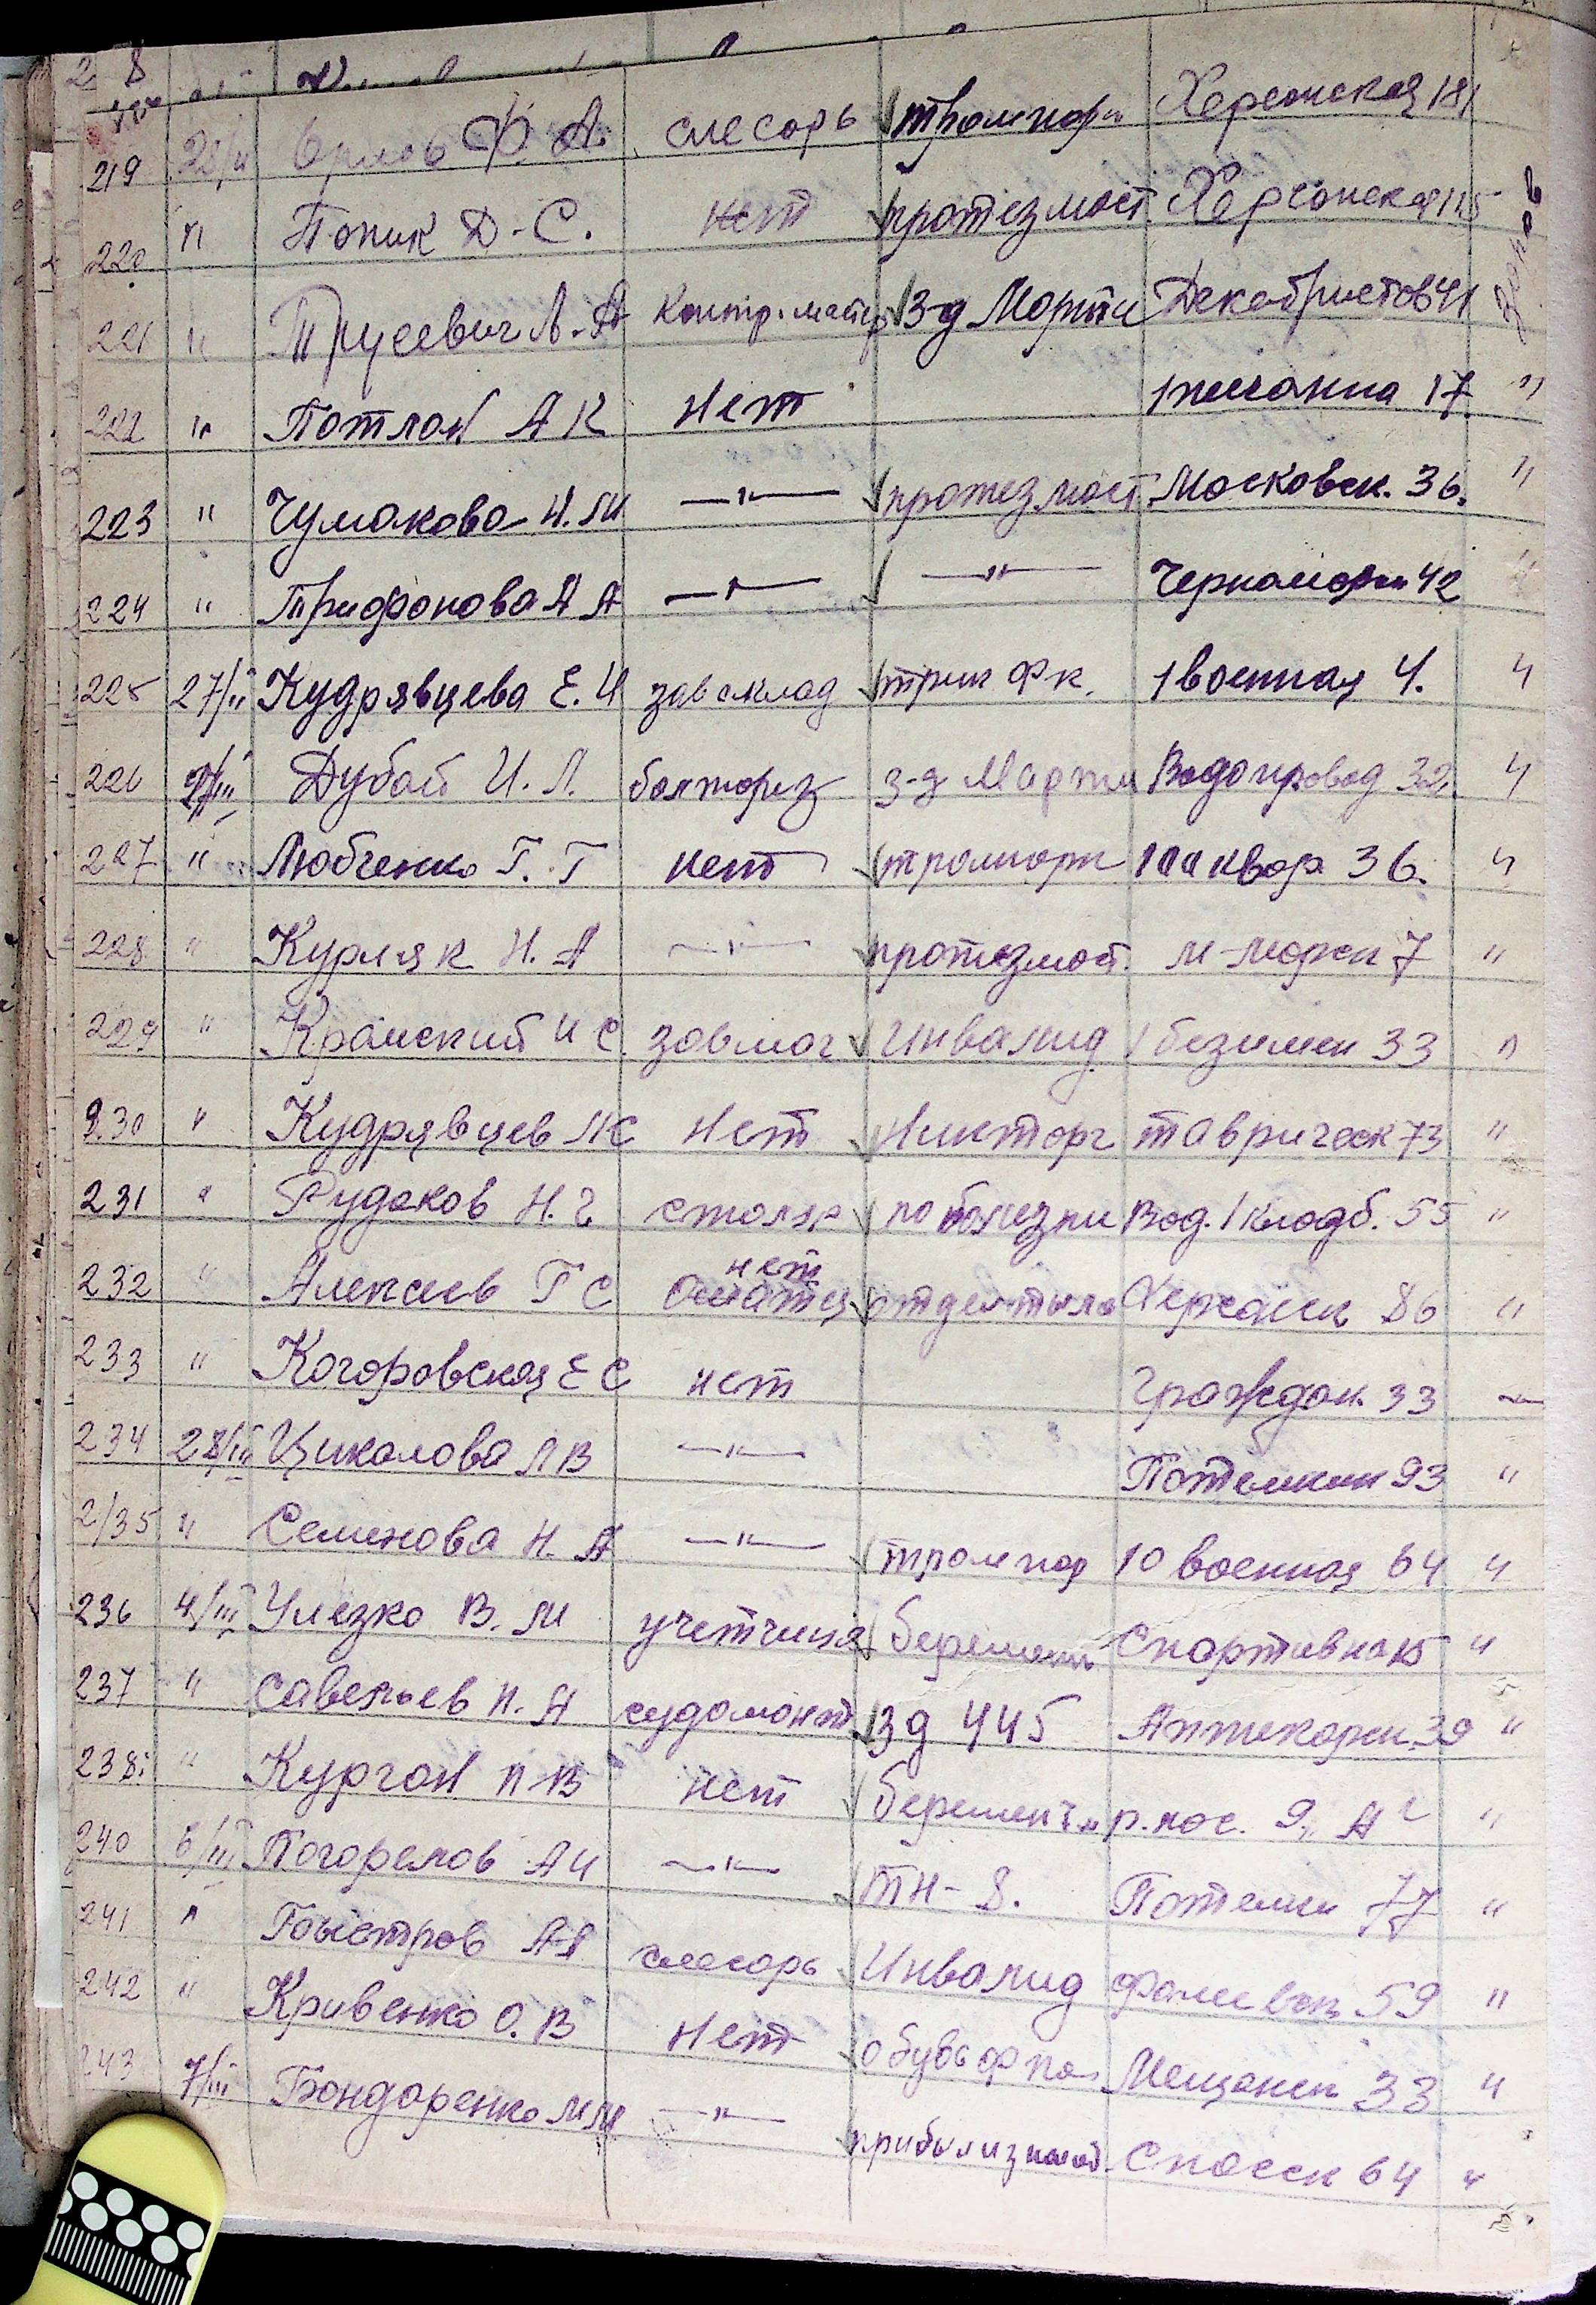 219 28/II Орлов Ф. А. слесарь транспорт Херсонская 181
220 " Попик Д. С. нет протезмаст. Херсонская 115
221 " Трусевич Л. А Контр. мастер З-д Марти Декабристов 41
222 " Потлов А К нет 17 "
223 " Чумакова Н. М —"— протезмаст. Московск. 36. "
224 " Трифонова А А —"— —"— Черноморск 42 "
225 27/II Кудрявцева Е. И завсклад трик ф к. 1 военная 4. "
226 2/III Дубай И. Л. болторез з-д Марти Водопровод 32 "
227 " Любченко Г. Г нет транспорт 36. "
228 " Курляк Н. А —"— протезмаст. м-морск 7 "
229 " Крамский И С. завмаг Инвалид 1 безимен 33 "
230 " Кудрявцев Л С Нет Никторг таврическ 73 "
231 " Рудаков Н. Г столяр по болезни Вод. 1 кладб. 55 "
232 " Алексеев Г С нет отдел тыла Херсонск 86 "
233 " Когоровская Е С нет Граждан. 33 "
234 28/III Цикалова Л В —"— Потемкин 93 "
2/35 " Семенова Н. А —"— транспор 10 военная 64 "
236 4/III Улезко В. М учетчица беременн Спортивная 15 "
237 " Савельев Н. А судомонт З д 445 Аптекарск. 39 "
238 " Курган П В нет беременн р. пос. 9, А "
240 6/III Погорелов А И —"— ТН-8. Потемки 77 "
241 " Быстров А Я слесарь Инвалид Фалеевск 59 "
242 " Кривенко О. В Нет обувь ф ка Мещанск 33 "
243 7/III Бондаренко М М —"— Спасск 64 "